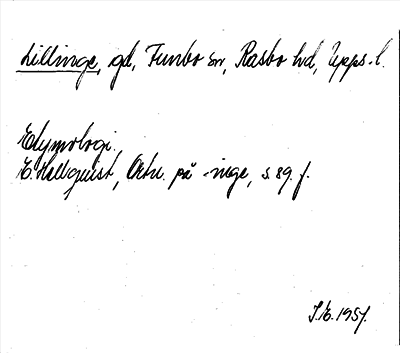 Lillinge, gd, Funbo sn, Rasbo hd, Upps. l.
Etymologi.
E. Hellquist, Ortn. på -inge, s 89. f.
1957.